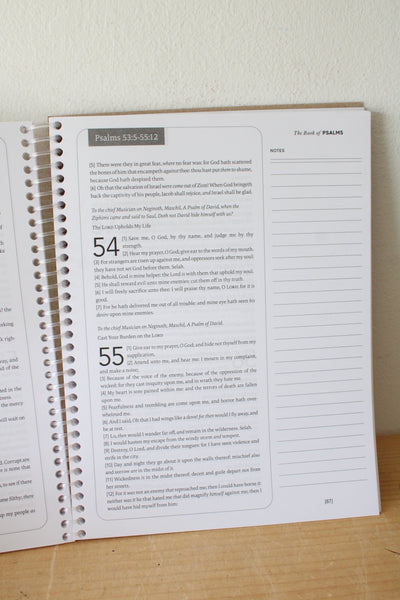 the
rking
k, righ-
ay, and
nd of the
ted in the
the mercy
will wait on
Corrupt are
e is none that
, to see if there
ome filthy; there
up my people as
Psalms 53:5-55:12
The Book of PSALMS
NOTES
(5) There were they in great fear, where no fear was: for God hath scattered
the bones of him that encampeth against thee: thou hast put them to shame,
because God hath despised them.
(6) Oh that the salvation of Israel were come out of Zion! When God bringeth
back the captivity of his people, Jacob shall rejoice, and Israel shall be glad.
To the chief Musician on Neginoth, Maschil, A Psalm of David, when the
Ziphims came and said to Saul, Doth not David hide himself with us?
The Lord Upholds My Life
54 (1) Save me, O God, by thy name, and judge me by thy
strength.
(2) Hear my prayer, O God; give ear to the words of my mouth.
(3) For strangers are risen up against me, and oppressors seek after my soul:
they have not set God before them. Selah.
(4) Behold, God is mine helper: the Lord is with them that uphold my soul.
(5) He shall reward evil unto mine enemies: cut them off in thy truth.
(6) I will freely sacrifice unto thee: I will praise thy name, O LORD; for it is
good.
(7) For he hath delivered me out of all trouble: and mine eye hath seen its
desire upon mine enemies.
To the chief Musician on Neginoth, Maschil, A Psalm of David.
Cast Your Burden on the LORD
55 (1) Give ear to my prayer, O God; and hide not thyself from my
supplication.
(2) Attend unto me, and hear me: I mourn in my complaint,
and make a noise;
(3) Because of the voice of the enemy, because of the oppression of the
wicked: for they cast iniquity upon me, and in wrath they hate me.
(4) My heart is sore pained within me: and the terrors of death are fallen
upon me.
(5) Fearfulness and trembling are come upon me, and horror hath over-
whelmed me.
(6) And I said, Oh that I had wings like a dove! for then would I fly away, and
be at rest.
(7) Lo, then would I wander far off, and remain in the wilderness. Selah.
(8) I would hasten my escape from the windy storm and tempest.
(9) Destroy, O Lord, and divide their tongues: for I have seen violence and
strife in the city.
(10) Day and night they go about it upon the walls thereof: mischief also
and sorrow are in the midst of it.
(11) Wickedness is in the midst thereof: deceit and guile depart not from
her streets.
(12) For it was not an enemy that reproached me; then I could have borne it:
neither was it he that hated me that did magnify himself against me; then I
would have hid myself from him:
[67]